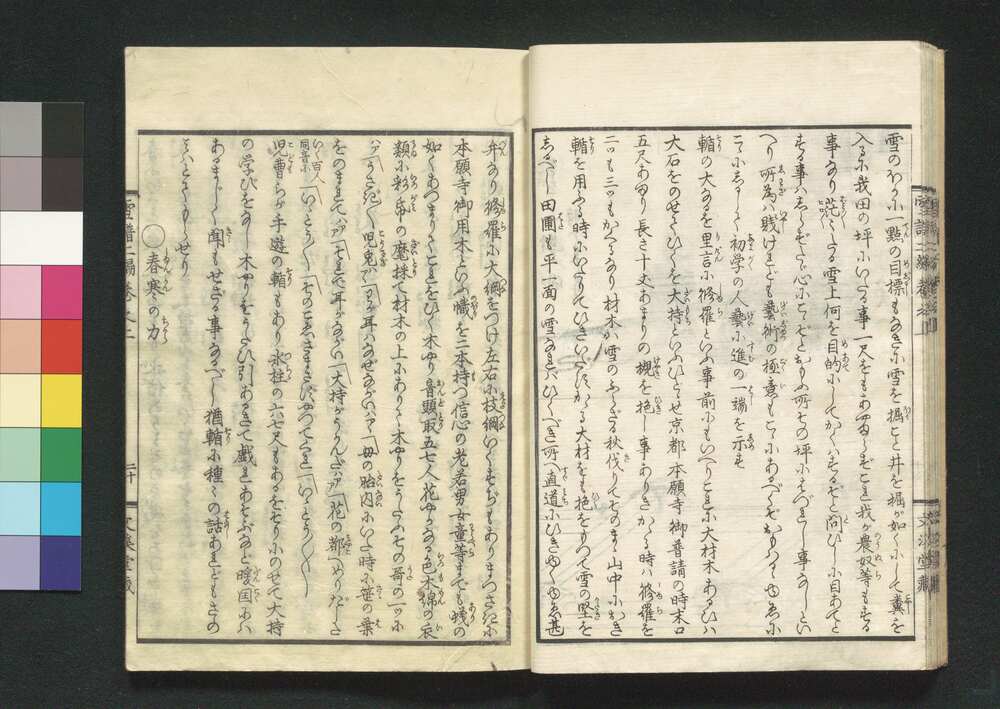 雪のほかに一點の目標もなきに雪を掘こと井を掘が如くにして糞を
入るに我田の坪にいたる事一尺をもあやまらずこれ我が農奴等もする
事なり茫々たる雪上何を目的にしてかくはするぞと問ひしに目あてと
する事はしらずたゞ心にこゝとおもふ所その坪にはづれし事なしとい
へり所為は賤けれども藝術の極意もこゝにあるべくぞおもはるゝゆゑに
こゝにしるして初学の人藝に進の一端を示す
轌の大なるを里言に修羅といふ事前にもいへりこれに大材木あるひは
大石をのせてひくを大持といふひとゝせ京都本願寺御普請の時末口
五尺あまり長さ十丈あまりの槻を挽し事ありきかゝる時は修羅を
二つも三つもかくるなり材木は雪のふらざる秋伐りてそのまゝ山中におき
轌を用ふる時にいたりてひきいだすかゝる大材をも挽をもつて雪の堅を
しるべし田圃も平一面の雪なれはひくべき所へ直道にひきゆくゆゑ甚
弁なり修羅に大綱をつけ左右に枝綱いくすぢもありまつさきに
本願寺御用木といふ幟を二本持つ信心の老若男女童等までも蟻の
如くあつまりてこれをひく木やり音頭取五七人花やかなる色木綿の衣
類に彩帋の麾採て材木の上にありて木やりをうたふその哥の一つに
ハァうさぎ〳〵児兎ハァわが耳はなぜながいハァ母の胎内にいた時に笹の葉
をのまれてハァそれで耳がながい大持がうかんだハァ花の都へめりだした
いく百人同音にいゝとう〳〵そのこゑさまさずやつてくれいゝとう〳〵〳〵
児曹らが手遊の轌もあり氷柱の六七尺もあるをそりにのせて大持
の学びをなし木やりをうたひ引あるきて戯れあそぶなど暖国には
あるまじく聞もせざる事なるべし猶轌に種々の話あれどもさのみ
はとてもらせり
○春寒の力
雪譜二編巻之二
二十
文溪堂藏